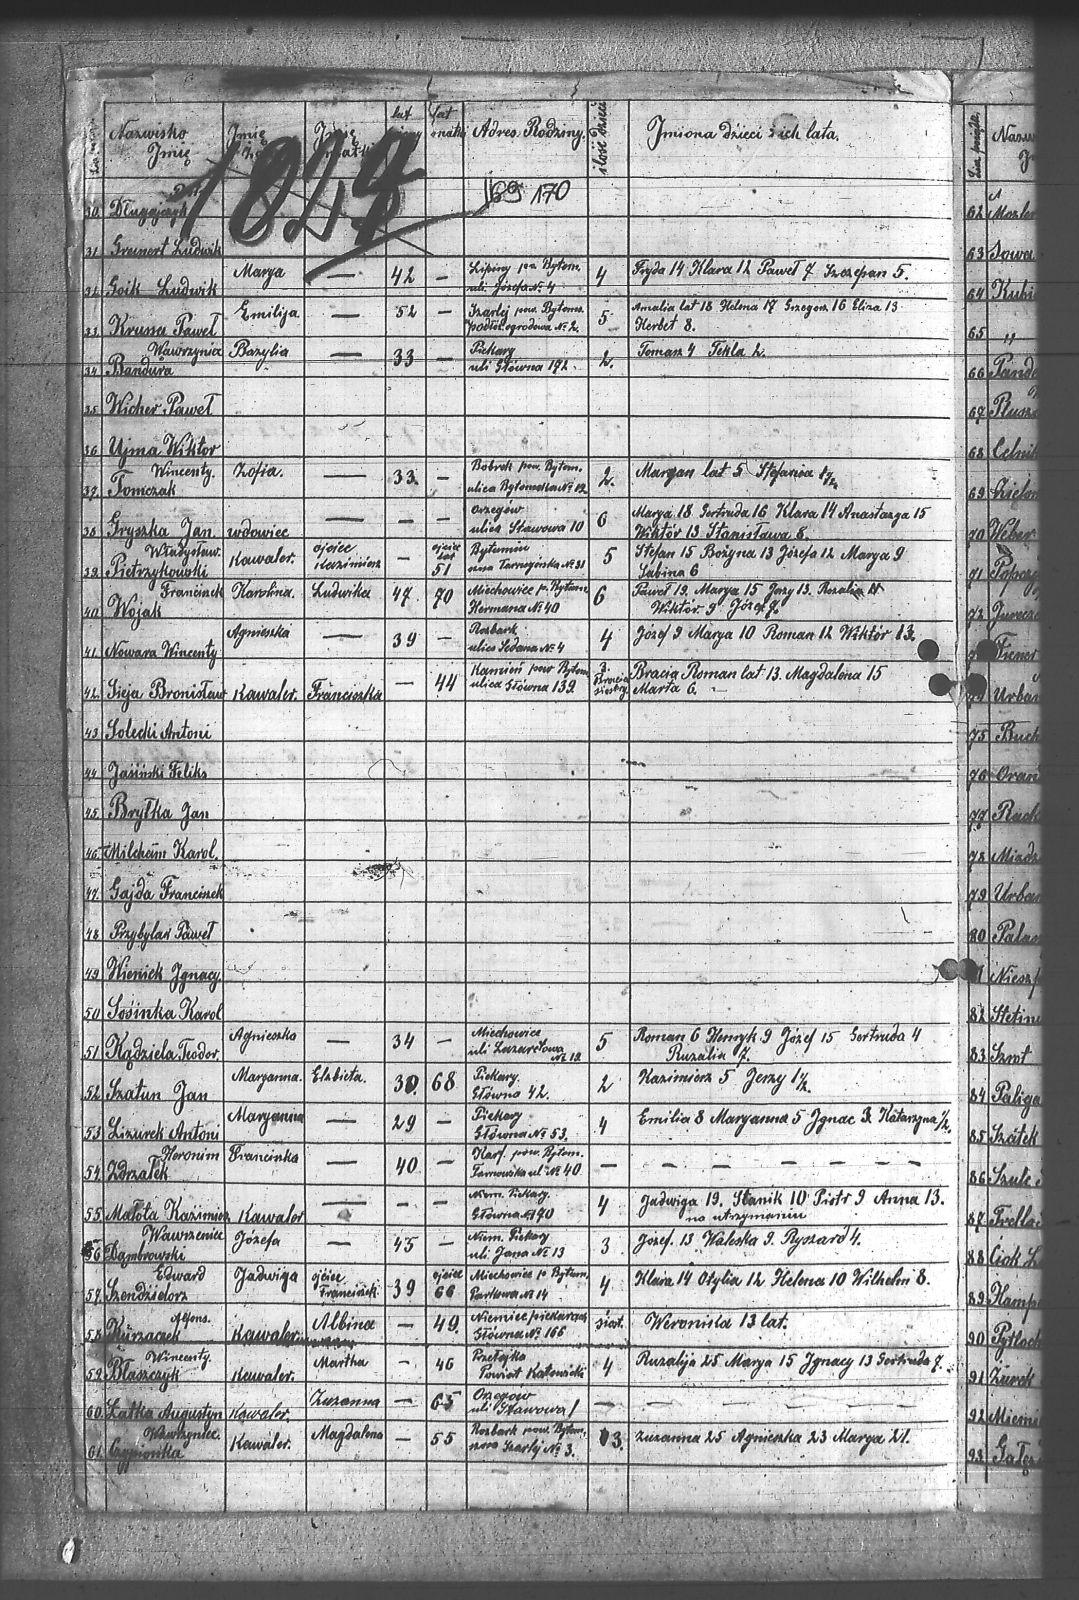 Nazwisko Imię Imię Imię lat lat Adres Rodziny. ilość dzieci Jmiona dzieci i ich lata.
1824
169 170
30. Długajczyk
31. Greinert Ludwik
32. Goik Ludwik Marya — 42 — Lipiny pow. Bytom. uli Józefa № 4 4 Fryda 14 Klara 12 Paweł 7 Szczepan 5.
33. Krussa Paweł Emilija — 52 — Szarlej pow. Bytoms. ogrodowa № 2. 5 Amalia lat 18 Helena 17 Grzegorz 16 Eliza 13
Herbet 8.
34. Wawrzynia Bandura Bazylia — 33 — Piekary uli Główna 192. 2. Tomasz 4 Tekla 2.
35 Wicher Paweł
36 Ujma Wiktor
37. Wincenty. Tomczak Zofia. — 33. — Bobrek pow. Bytom. ulica Bytomska № 12 2. Maryan lat 5 Stefania 1/2
38. Gryszka Jan wdowiec — — — Orzegów ulica Stawowa 10 6 Marya 18 Gertruda 16 Klara 14 Anastazya 15
Wiktór 13 Stanisława 8.
39. Władysław. Pietrzykowski Kawaler. ojciec Kazimierz — ojciec lat 51 Bytomiu Tarnogińska № 31 5 Stefan 15 Bożyna 13 Józefa 12 Marya 9
Sabina 6
40. Franciszek Wojak Karolina. Ludwika 47. 70 Miechowice p. Bytom. Hermana № 40 6 Paweł 19. Marya 15 Jerzy 13. Rozalia 11
Wiktor 9 Józef 7.
41. Nowara Wincenty Agnieszka — 39 — Rozbark ulica Sedana № 4 4 Józef 9 Marya 10 Roman 12 Wiktór 13.
42. Sieja Bronisław Kawaler. Franciszka — 44 Kamień pow Bytom ulica Główna 139. 3. Bracia siostry Bracia Roman lat 13. Magdalena 15
Marta 6. —
43 Solecki Antoni
44 Jasiński Feliks
45 Bryłka Jan
46. Milcham Karol.
47. Gajda Franciszek
48 Przybylan Paweł
49 Wieniek Jgnacy
50 Sośinka Karol
51 Kądziela Teodor. Agnieszka — 34 — Miechowice uli Lazaretowa № 19. 5 Roman 6 Henryk 9 Józef 15 Gertruda 4
Ruzalia 7.
52. Szatun Jan Maryanna. Elzbieta. 30. 68 Piekary. Główna 42. 2 Kazimierz 5 Jerzy 1 1/2
53 Lizurek Antoni Maryanna — 29 — Piekary Główna № 53. 4 Emilia 8 Maryanna 5 Jgnac 3. Katarzyna 1/2.
54. Heronim Zdrzałek Francinka — 40 — Karf. pow. Bytom. Tarnowska ul № 40 — — — — — — —
55. Małota Kazimierz Kawaler — — — Niem. Piekary. Główna № 170 4 Jadwiga 19. Stanik 10 Piotr 9 Anna 13.
na utrzymaniu
56 Wawrzeniec Dąmbrowski Józefa — 45 — Niem. Piekary uli Jana № 13 3 Józef. 13 Waleska 9. Ryszard 4.
57. Edward Szendzielorz Jadwiga ojciec Franciszek 39 ojciec 66 Miechowice p. Bytom. Parkowa № 14 4 Klara 14 Otylia 12 Helena 10 Wilhelm 8.
58. Alfons. Kurzacek Kawaler. Albina — 49. Niemiec piekary Główna № 166 siost. Weronika 13 lat.
59. Wincenty. Błaszczyk Kawaler. Martha — 46 Przełajka Powiat Katowicki 4 Ruzalija 25 Marya 15 Jgnacy 13 Gertruda 7.
60. Łatka Augustyn Kawaler. Zuzanna — 65 Orzegow uli Stawowa 1 — — — — — — —
61. Wawrzyniec. Cypionka Kawaler. Magdalena — 55 Rozbark pow. Bytom, Szarlej № 3. 3. Zuzanna 25 Agnieszka 23 Marya 21.
62
63 Sowa
64 Kubi
65 "
66
67
68 Celnik
69
70 Weber
71
72
Urban
75 Buch
76
77
78
79 Urban
80
82
83 Szrot
84 Paliga
85
86
87
88
89
90
91 Żurek
92
93